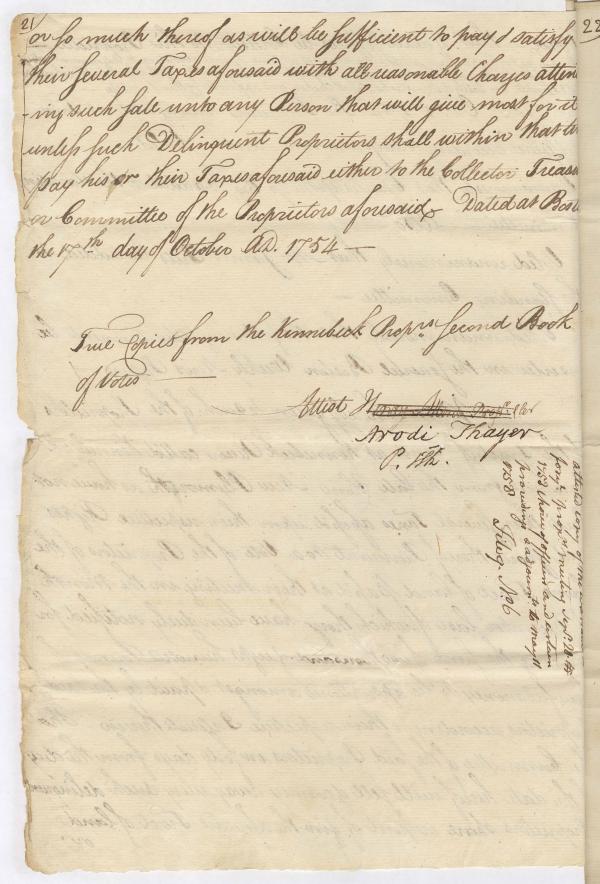 21
or so much thereof as will be sufficient to pay & satisfy
their several Taxes aforesaid with all reasonable Charges atten
-ing such sale unto any Person that will give most for it
unless such Delinquent Proprietors shall within that
pay his or their Taxes aforesaid either to the Collector Treas
or Committee of the Proprietors aforesaid Dated at Bos
the 17th day of October AD. 1754 —
True Copies from the Kennebeck Proprs Second Book
of Votes
Attest
Arodi Thayer
P. Clk.
attested copy of the
meeting Sept 20th
1753 choice of officers and certain
proceedings & adjournt to May 11
1758
File 9. No 6
22